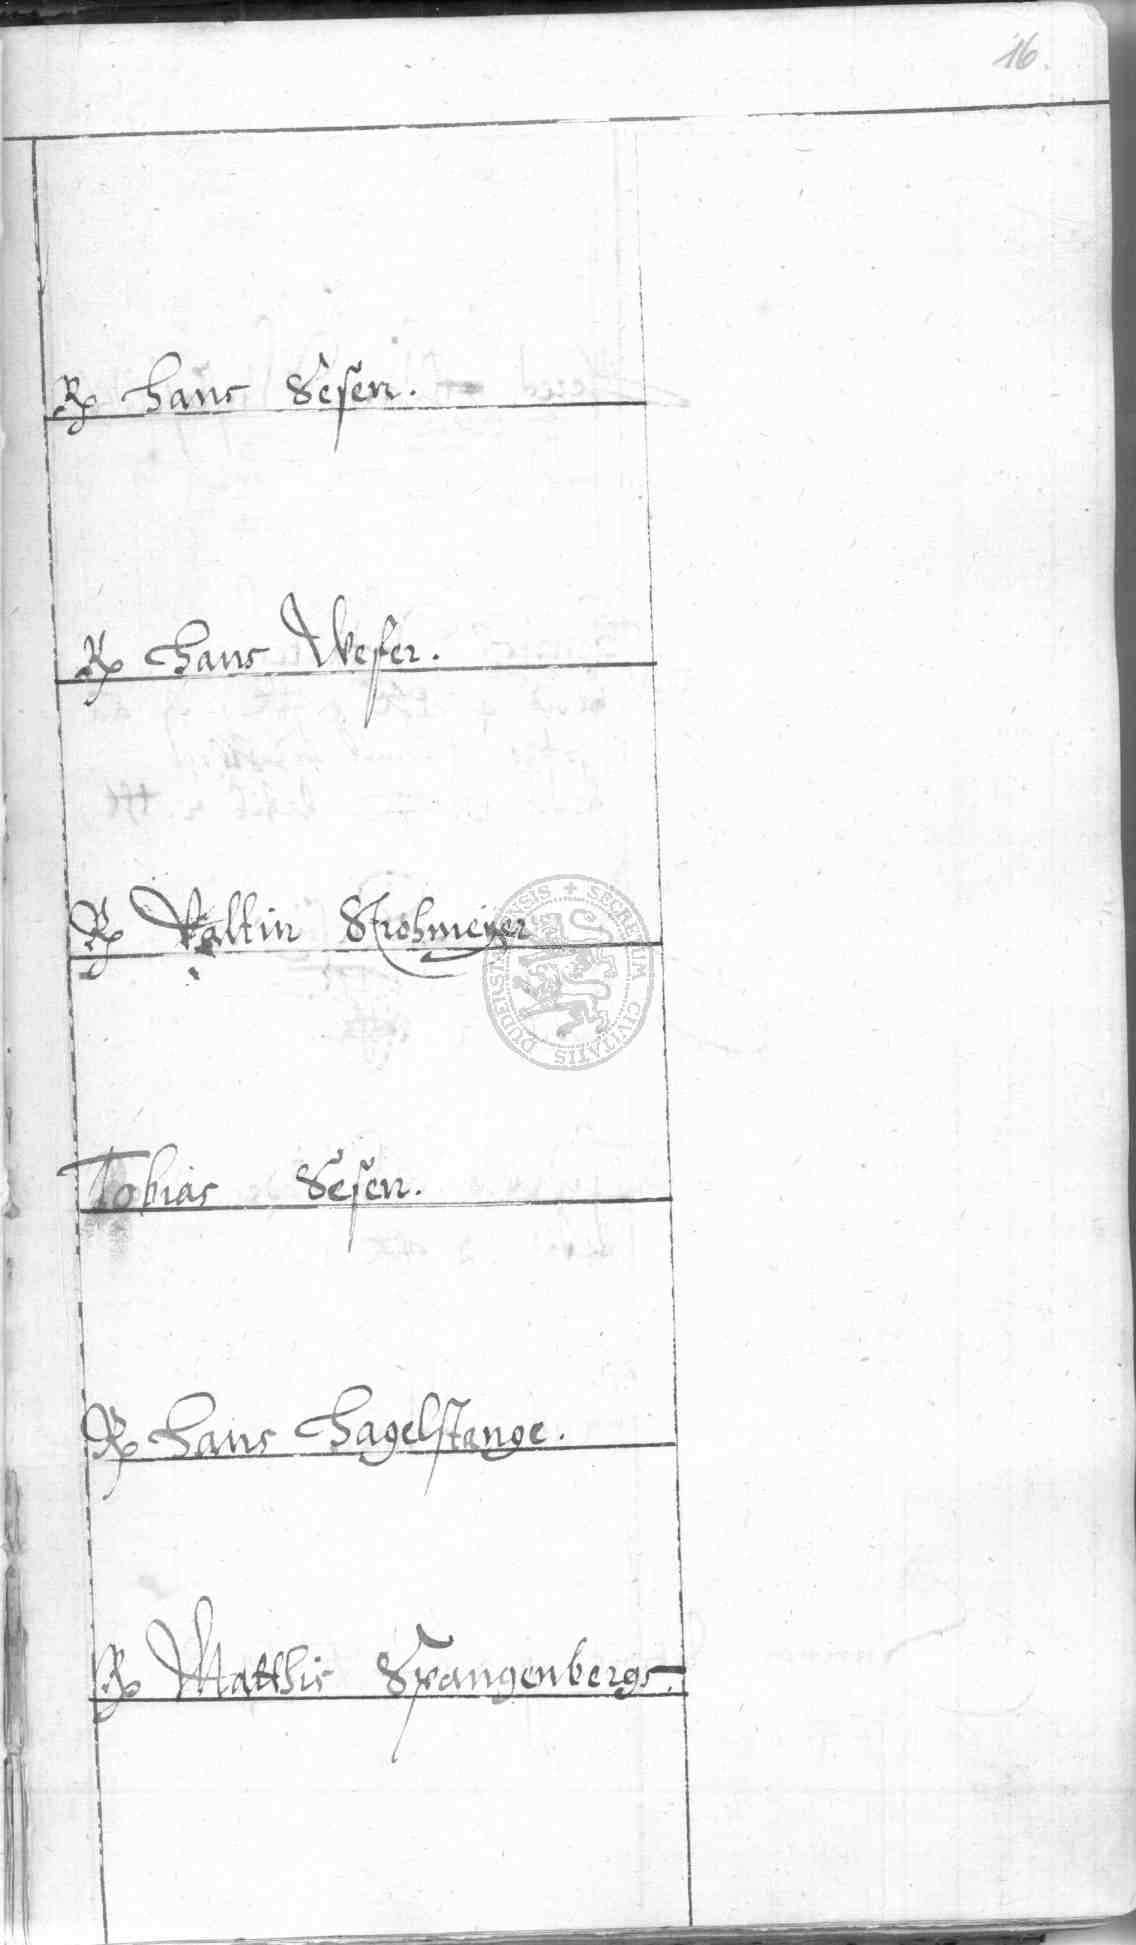 16.
R Hans Sesen.
R Hans Weser.
R Valtin Strohmeyer
SECRETUM CIVITATIS DUDERSTADENSIS
Tobias Sesen.
R Hans Hagelstange.
R Matthis Spangenbergs.